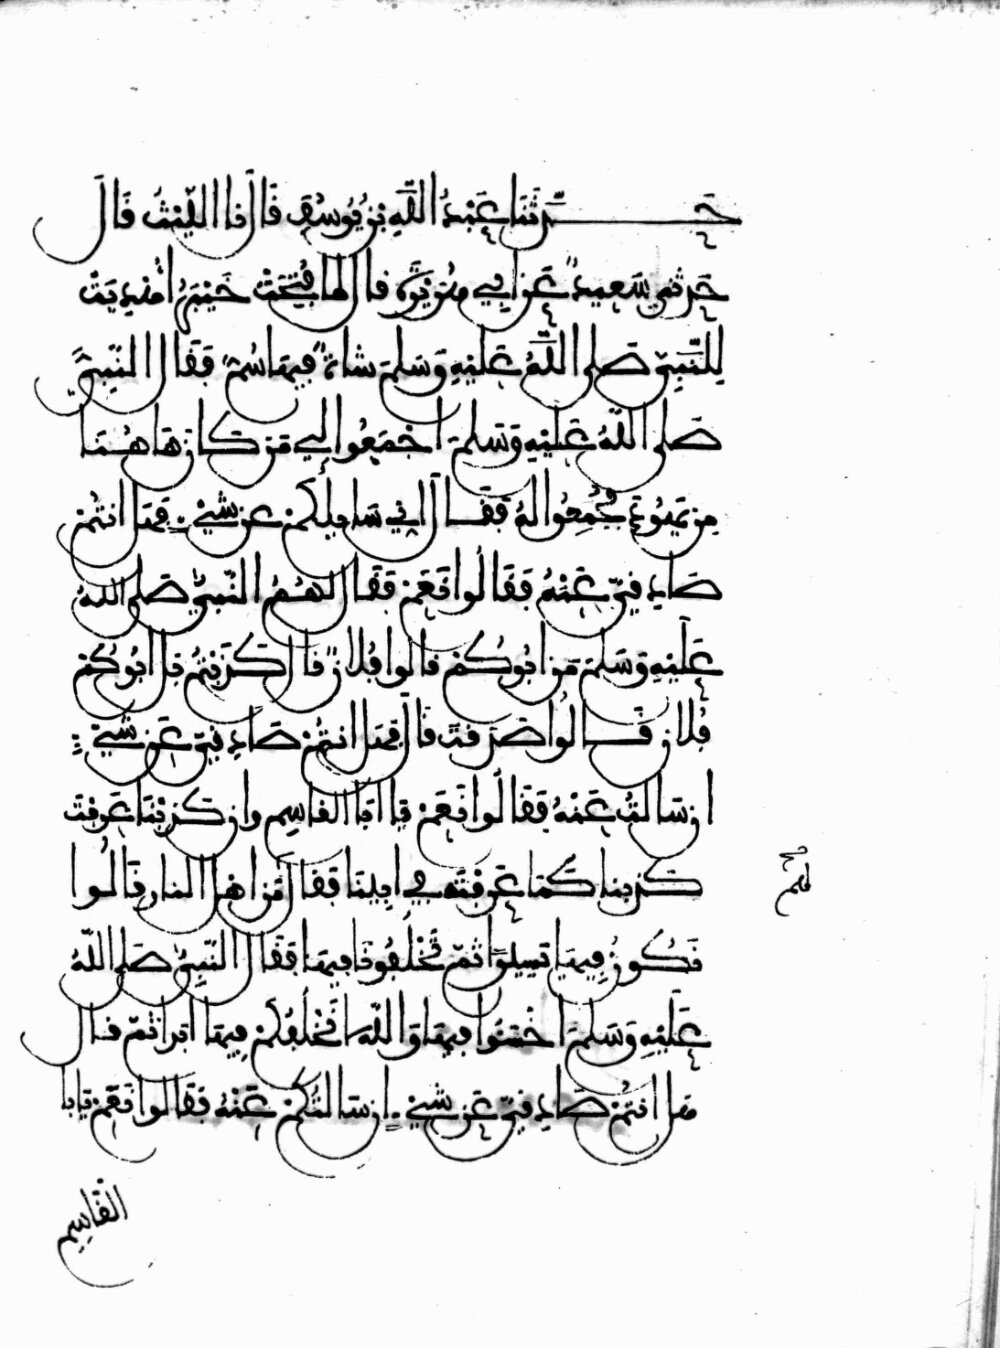 حَدَّثَنَا عَبْدُ اللَّهِ بْنُ يُوسُفَ قَالَ نا اللَّيْثُ قَالَ
حَدثني سَعِيدٌ عَن أبِي هُرَيْرَةَ قال لما فُتِحَتْ خَيْبَرُ أُهْدِيَتْ
لِلنَّبِيِّ صَلى اللَّهُ عَلَيْهِ وَسَلمَ شاةٌ فِيهَا سُمٌّ فَقَال النَّبِيُّ
صَلى اللَّهُ عَلَيْهِ وَسَلمَ اجْمَعُوا إلي مَن كَانَ هَا هُنَا
مِن يَهُودَ فَجُمِعُوا لَهُ فَقَالَ اني سَايلُكُمْ عن شَيْءٍ فَهَل انتُمْ
صَادِقيَّ عَنْهُ فَقَالُوا نَعَمْ فَقَال لَهُمُ النَّبِيُّ صَلى اللهُ
عَلَيْهِ وَسَلمَ مَن ابُوكُمْ قالوا فُلانٌ قال كَذَبْتُمْ بَل ابُوكُمْ
فُلان قَالُوا صَدَقْتَ قَالَ فهَل انتُمْ صَادِقيَّ عَن شَيْءٍ
ان سَالتُ عَنْهُ فَقَالُوا نَعَمْ يَا أبَا القاسِمِ وان كَذَبْنَا عَرَفْتَ
كَذِبنا كَمَا عَرَفْتَه في أبِينَا فقال مَن اهل النار قَالُوا
نَكُونُ فِيهَا يَسِيرًا ثُمَّ تَخْلُفُونَا فِيهَا فَقَال النَّبِيُّ صَلى اللَّهُ
عَلَيْهِ وَسَلمَ اخْسَئُوا فِيهَا وَاللَّهِ لا نَخْلُفُكُمْ فِيهَا أبَدًا ثُمَّ قال
هَل انتُمْ صَادِقيَّ عَن شَيْءٍ إن سَالتُكُمْ عَنْهُ فَقَالُوا نَعَمْ يَابا
القَاسِمِ
لهم